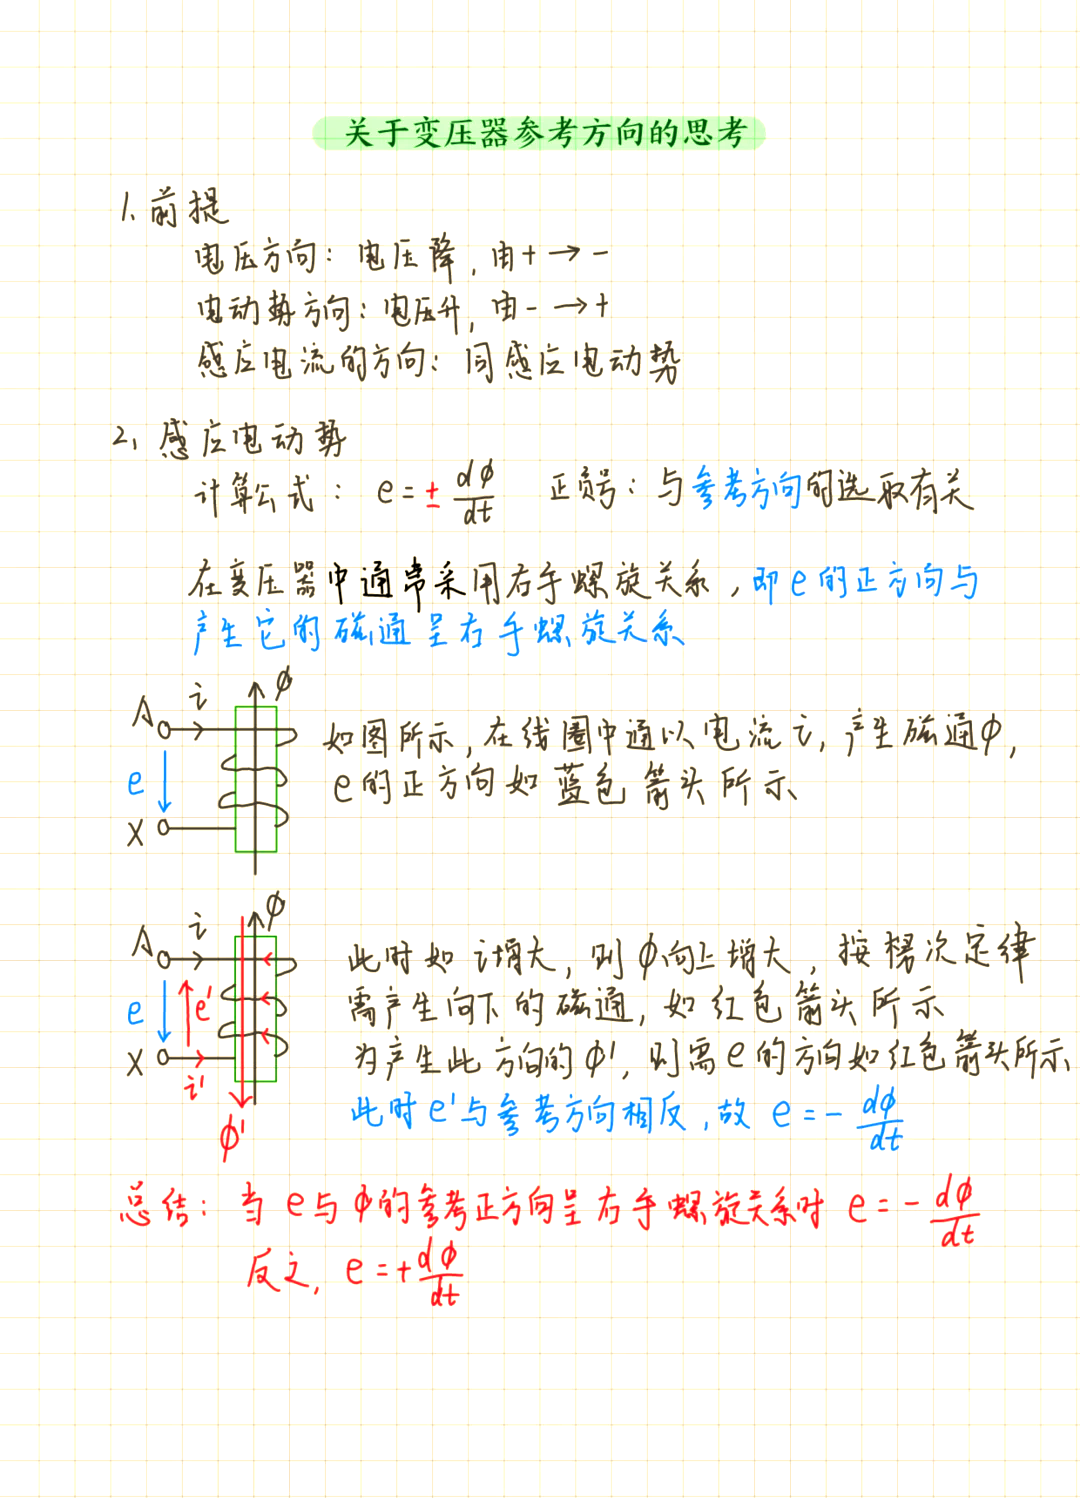 关于变压器参考方向的思考
1、前提
电压方向：电压降，由+→-
电动势方向：电压升，由-→+
感应电流的方向：同感应电动势
2、感应电动势
计算公式：e=±dϕ/dt 正负号：与参考方向的选取有关
在变压器中通常采用右手螺旋关系，即e的正方向与
产生它的磁通呈右手螺旋关系
A i ϕ
e
X
如图所示，在线圈中通以电流i，产生磁通ϕ，
e的正方向如蓝色箭头所示
A i ϕ
e e'
X i'
ϕ'
此时如i增大，则ϕ向上增大，按楞次定律
需产生向下的磁通，如红色箭头所示
为产生此方向的ϕ'，则需e的方向如红色箭头所示
此时e'与参考方向相反，故 e=-dϕ/dt
总结：当e与ϕ的参考正方向呈右手螺旋关系时 e=-dϕ/dt
反之，e=+dϕ/dt